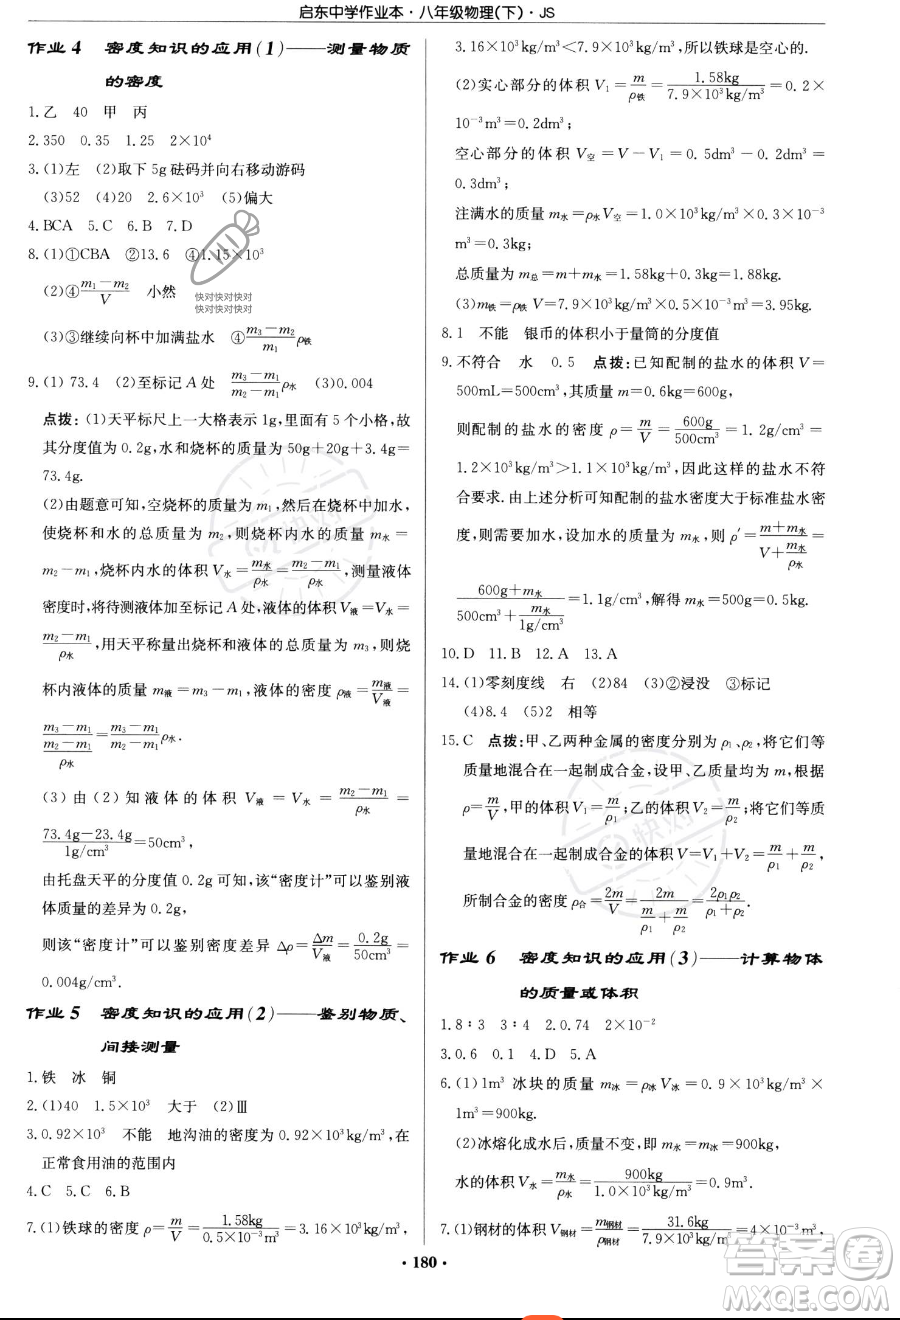 启东中学作业本·八年级物理(下)·JS
作业4 密度知识的应用(1)——测量物质
的密度
1.乙 40 甲 丙
2.350 0.35 1.25 2×10⁴
3.(1)左 (2)取下5g砝码并向右移动游码
(3)52 (4)20 2.6×10³ (5)偏大
4.BCA 5.C 6.B 7.D
8.(1)①CBA ②13.6 ④1.15×10³
(2)④(m₁-m₂)/V 小然
快对快对快对
快对快对快对
(3)③继续向杯中加满盐水 ④(m₃-m₂)/m₁ ρ铁
9.(1)73.4 (2)至标记A处 (m₃-m₁)/(m₂-m₁)ρ水 (3)0.004
点拨:(1)天平标尺上一大格表示1g,里面有5个小格,故
其分度值为0.2g,水和烧杯的质量为50g+20g+3.4g=
73.4g.
(2)由题意可知,空烧杯的质量为m₁,然后在烧杯中加水,
使烧杯和水的总质量为m₂,则烧杯内水的质量m水=
m₂-m₁,烧杯内水的体积V水=m水/ρ水=(m₂-m₁)/ρ水,测量液体
密度时,将待测液体加至标记A处,液体的体积V液=V水=
(m₂-m₁)/ρ水,用天平称量出烧杯和液体的总质量为m₃,则烧
杯内液体的质量m液=m₃-m₁,液体的密度ρ液=m液/V液=
(m₃-m₁)/((m₂-m₁)/ρ水)=(m₃-m₁)/(m₂-m₁)ρ水.
(3)由(2)知液体的体积V液=V水=(m₂-m₁)/ρ水=
(73.4g-23.4g)/(1g/cm³)=50cm³,
由托盘天平的分度值0.2g可知,该“密度计”可以鉴别液
体质量的差异为0.2g,
则该“密度计”可以鉴别密度差异Δρ=Δm/V液=0.2g/50cm³=
0.004g/cm³.
作业5 密度知识的应用(2)——鉴别物质、
间接测量
1.铁 冰 铜
2.(1)40 1.5×10³ 大于 (2)Ⅲ
3.0.92×10³ 不能 地沟油的密度为0.92×10³kg/m³,在
正常食用油的范围内
4.C 5.C 6.B
7.(1)铁球的密度ρ=m/V=1.58kg/(0.5×10⁻³m³)=3.16×10³kg/m³,
3.16×10³kg/m³<7.9×10³kg/m³,所以铁球是空心的.
(2)实心部分的体积V₁=m/ρ铁=1.58kg/(7.9×10³kg/m³)=0.2×
10⁻³m³=0.2dm³;
空心部分的体积V空=V-V₁=0.5dm³-0.2dm³=
0.3dm³;
注满水的质量m水=ρ水V空=1.0×10³kg/m³×0.3×10⁻³
m³=0.3kg;
总质量为m总=m+m水=1.58kg+0.3kg=1.88kg.
(3)m铁=ρ铁V=7.9×10³kg/m³×0.5×10⁻³m³=3.95kg.
8.1 不能 银币的体积小于量筒的分度值
9.不符合 水 0.5 点拨:已知配制的盐水的体积V=
500mL=500cm³,其质量m=0.6kg=600g,
则配制的盐水的密度ρ=m/V=600g/500cm³=1.2g/cm³=
1.2×10³kg/m³>1.1×10³kg/m³,因此这样的盐水不符
合要求.由上述分析可知配制的盐水密度大于标准盐水密
度,则需要加水,设加水的质量为m水,则ρ′=(m+m水)/(V+m水/ρ水)=
(600g+m水)/(500cm³+m水/(1g/cm³))=1.1g/cm³,解得m水=500g=0.5kg.
10.D 11.B 12.A 13.A
14.(1)零刻度线 右 (2)84 (3)②浸没 ③标记
(4)8.4 (5)2 相等
15.C 点拨:甲、乙两种金属的密度分别为ρ₁、ρ₂,将它们等
质量地混合在一起制成合金,设甲、乙质量均为m,根据
ρ=m/V,甲的体积V₁=m/ρ₁;乙的体积V₂=m/ρ₂,将它们等质
量地混合在一起制成合金的体积V=V₁+V₂=m/ρ₁+m/ρ₂,
所制合金的密度ρ合=2m/V=2m/(m/ρ₁+m/ρ₂)=2ρ₁ρ₂/(ρ₁+ρ₂).
作业6 密度知识的应用(3)——计算物体
的质量或体积
1.8∶3 3∶4 2.0.74 2×10⁻²
3.0.6 0.1 4.D 5.A
6.(1)1m³冰块的质量m冰=ρ冰V冰=0.9×10³kg/m³×
1m³=900kg.
(2)冰熔化成水后,质量不变,即m水=m冰=900kg,
水的体积V水=m水/ρ水=900kg/(1.0×10³kg/m³)=0.9m³.
7.(1)钢材的体积V钢材=m钢材/ρ钢材=31.6kg/(7.9×10³kg/m³)=4×10⁻³m³
·180·
答案圈
MXQE.COM